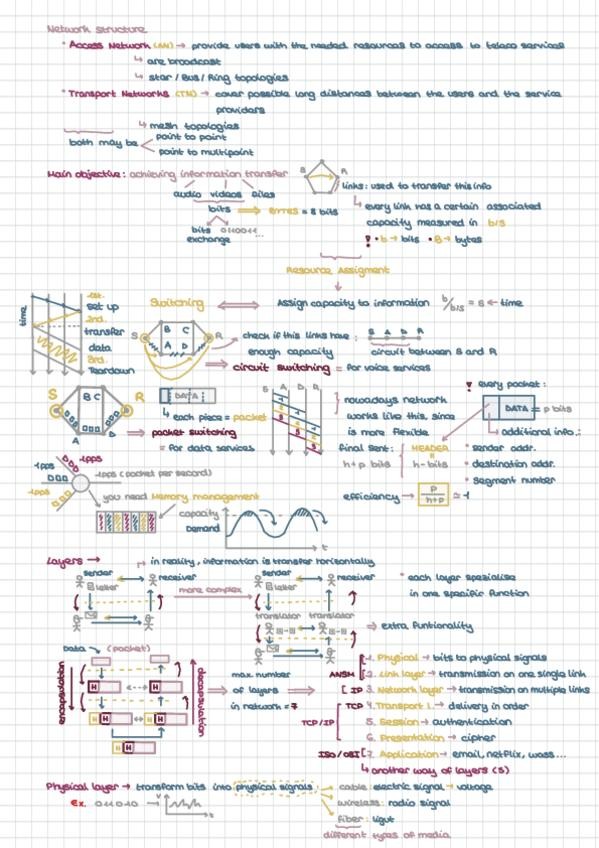 Network structure
* Access Network (AN) → provide users with the needed resources to access to teleco services
↳ are broadcast
↳ star / Bus / Ring topologies
* Transport Networks (TN) → cover possible long distances between the users and the service
providers
↳ mesh topologies
both may be point to point
point to multipoint
Main objective: achieving information transfer
audio videos files
bits ⇒ BYTES = 8 bits
bits 010011...
exchange
S R
links: used to transfer this info
↳ every link has a certain associated
capacity measured in b/s
! • b → bits • B → bytes
Resource Assigment
time
1st.
set up
2nd.
transfer
data
3rd.
Teardown
Switching ⟺ Assign capacity to information b/b/s = s ← time
S B C R
A D
check if this links have : S A D R
enough capacity circuit between S and R
⇒ circuit switching = for voice services
S B C R
A D
DATA
↳ each piece = packet
⇒ packet switching
= for data services
S A D R
nowadays network
works like this, since
is more flexible
! every packet:
DATA = p bits
additional info.:
final sent: HEADER
h+p bits = h-bits
* sender addr.
* destination addr.
* segment number
efficiency → p/h+p ≃ 1
1pps
1pps
1pps
1pps (packet per second)
you need Memory management
capacity
Demand
t
Layers → in reality, information is transfer horizontally
sender receiver
letter
more complex
sender receiver
letter
translator translator
* each layer spezialise
in one specific function
⇒ extra funtionality
Data (packet)
encapsulation
decapsulation
H H
H H
H
max. number
of layers ⇒
in network = 7
1. Physical → bits to physical signals
ANSM 2. Link layer → transmission on one single link
IP 3. Network layer → transmission on multiple links
TCP 4. Transport l. → delivery in order
TCP/IP 5. Session → authentication
6. Presentation → cipher
ISO/OSI 7. Application → email, netflix, wass...
↳ another way of layers (5)
Physical layer → transform bits into physical signals
cable: electric signal → voltage
wireless: radio signal
fiber: ligut
different types of media
Ex. 011010 → v t